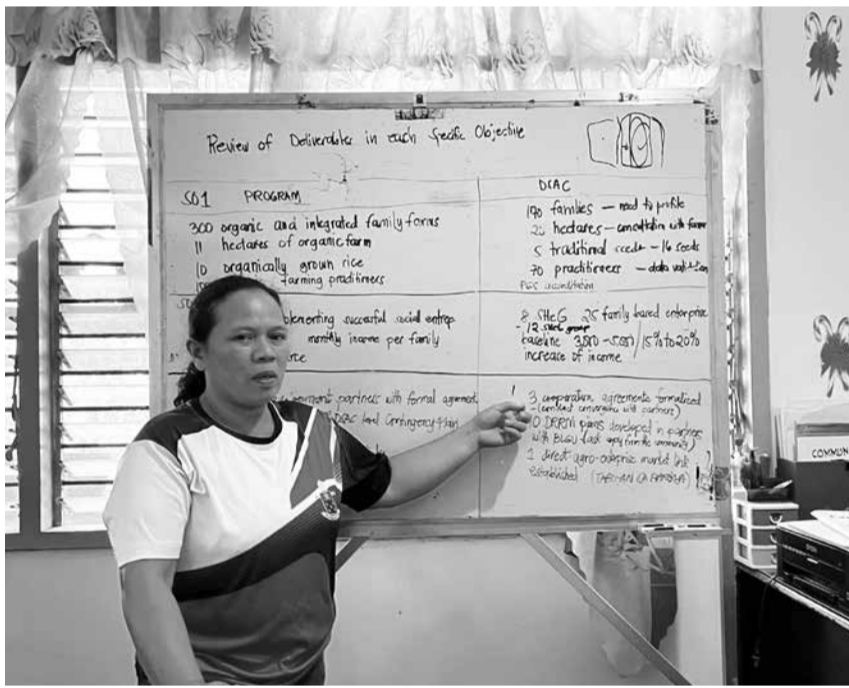 Review of Deliverables in each Specific Objective
SO1 PROGRAM
300 organic and integrated family farms
11 hectares of organic farm
10 organically grown rice
farming practitioners
implementing successful social entrep
monthly income per family
partners with formal agreement
DSAC level Contingency Plan
DSAC
190 families — need to profile
20 hectares — consultation with farmer
5 traditional seeds — 16 seeds
70 practitioners — data validation
PGS accreditation
8 SHeG 25 family based enterprise
- 12 SHeG group
baseline 3,500 - 5,000 / 15% to 20%
increase of income
3 cooperation agreements formalized
- (conduct convergence with partners)
0 DRRM plans developed in partners
with BLGU (ask copy from the community)
1 direct agro-enterprise market link
established
COMMUN